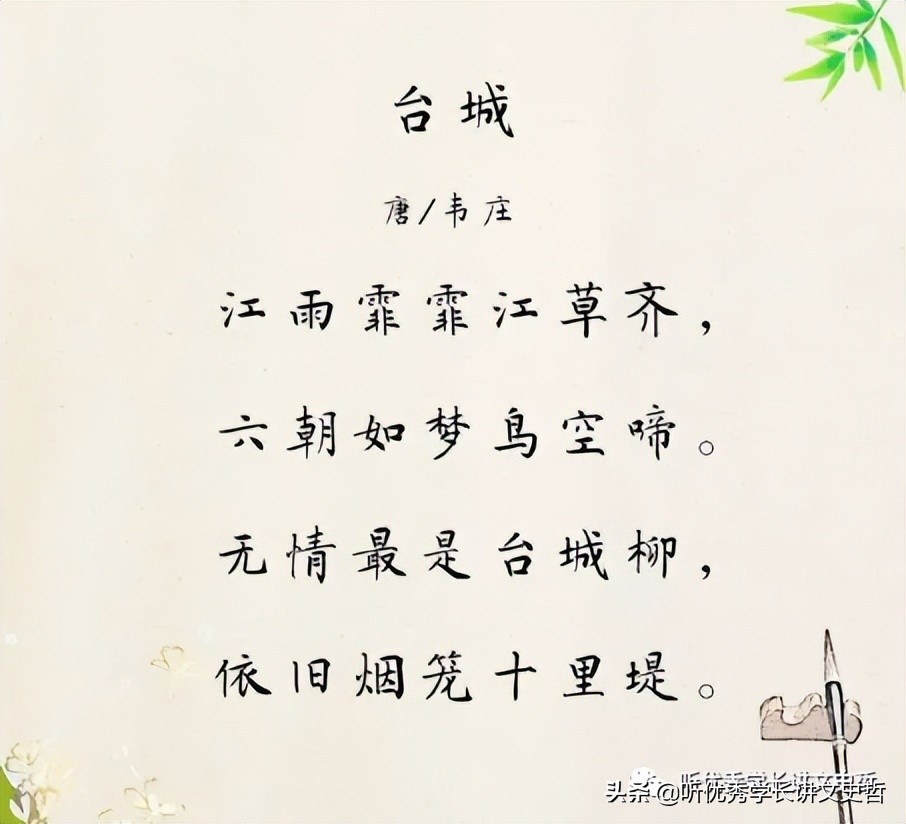 台城
唐/韦庄
江雨霏霏江草齐，
六朝如梦鸟空啼。
无情最是台城柳，
依旧烟笼十里堤。
听优秀学长讲文史哲
头条@听优秀学长讲文史哲